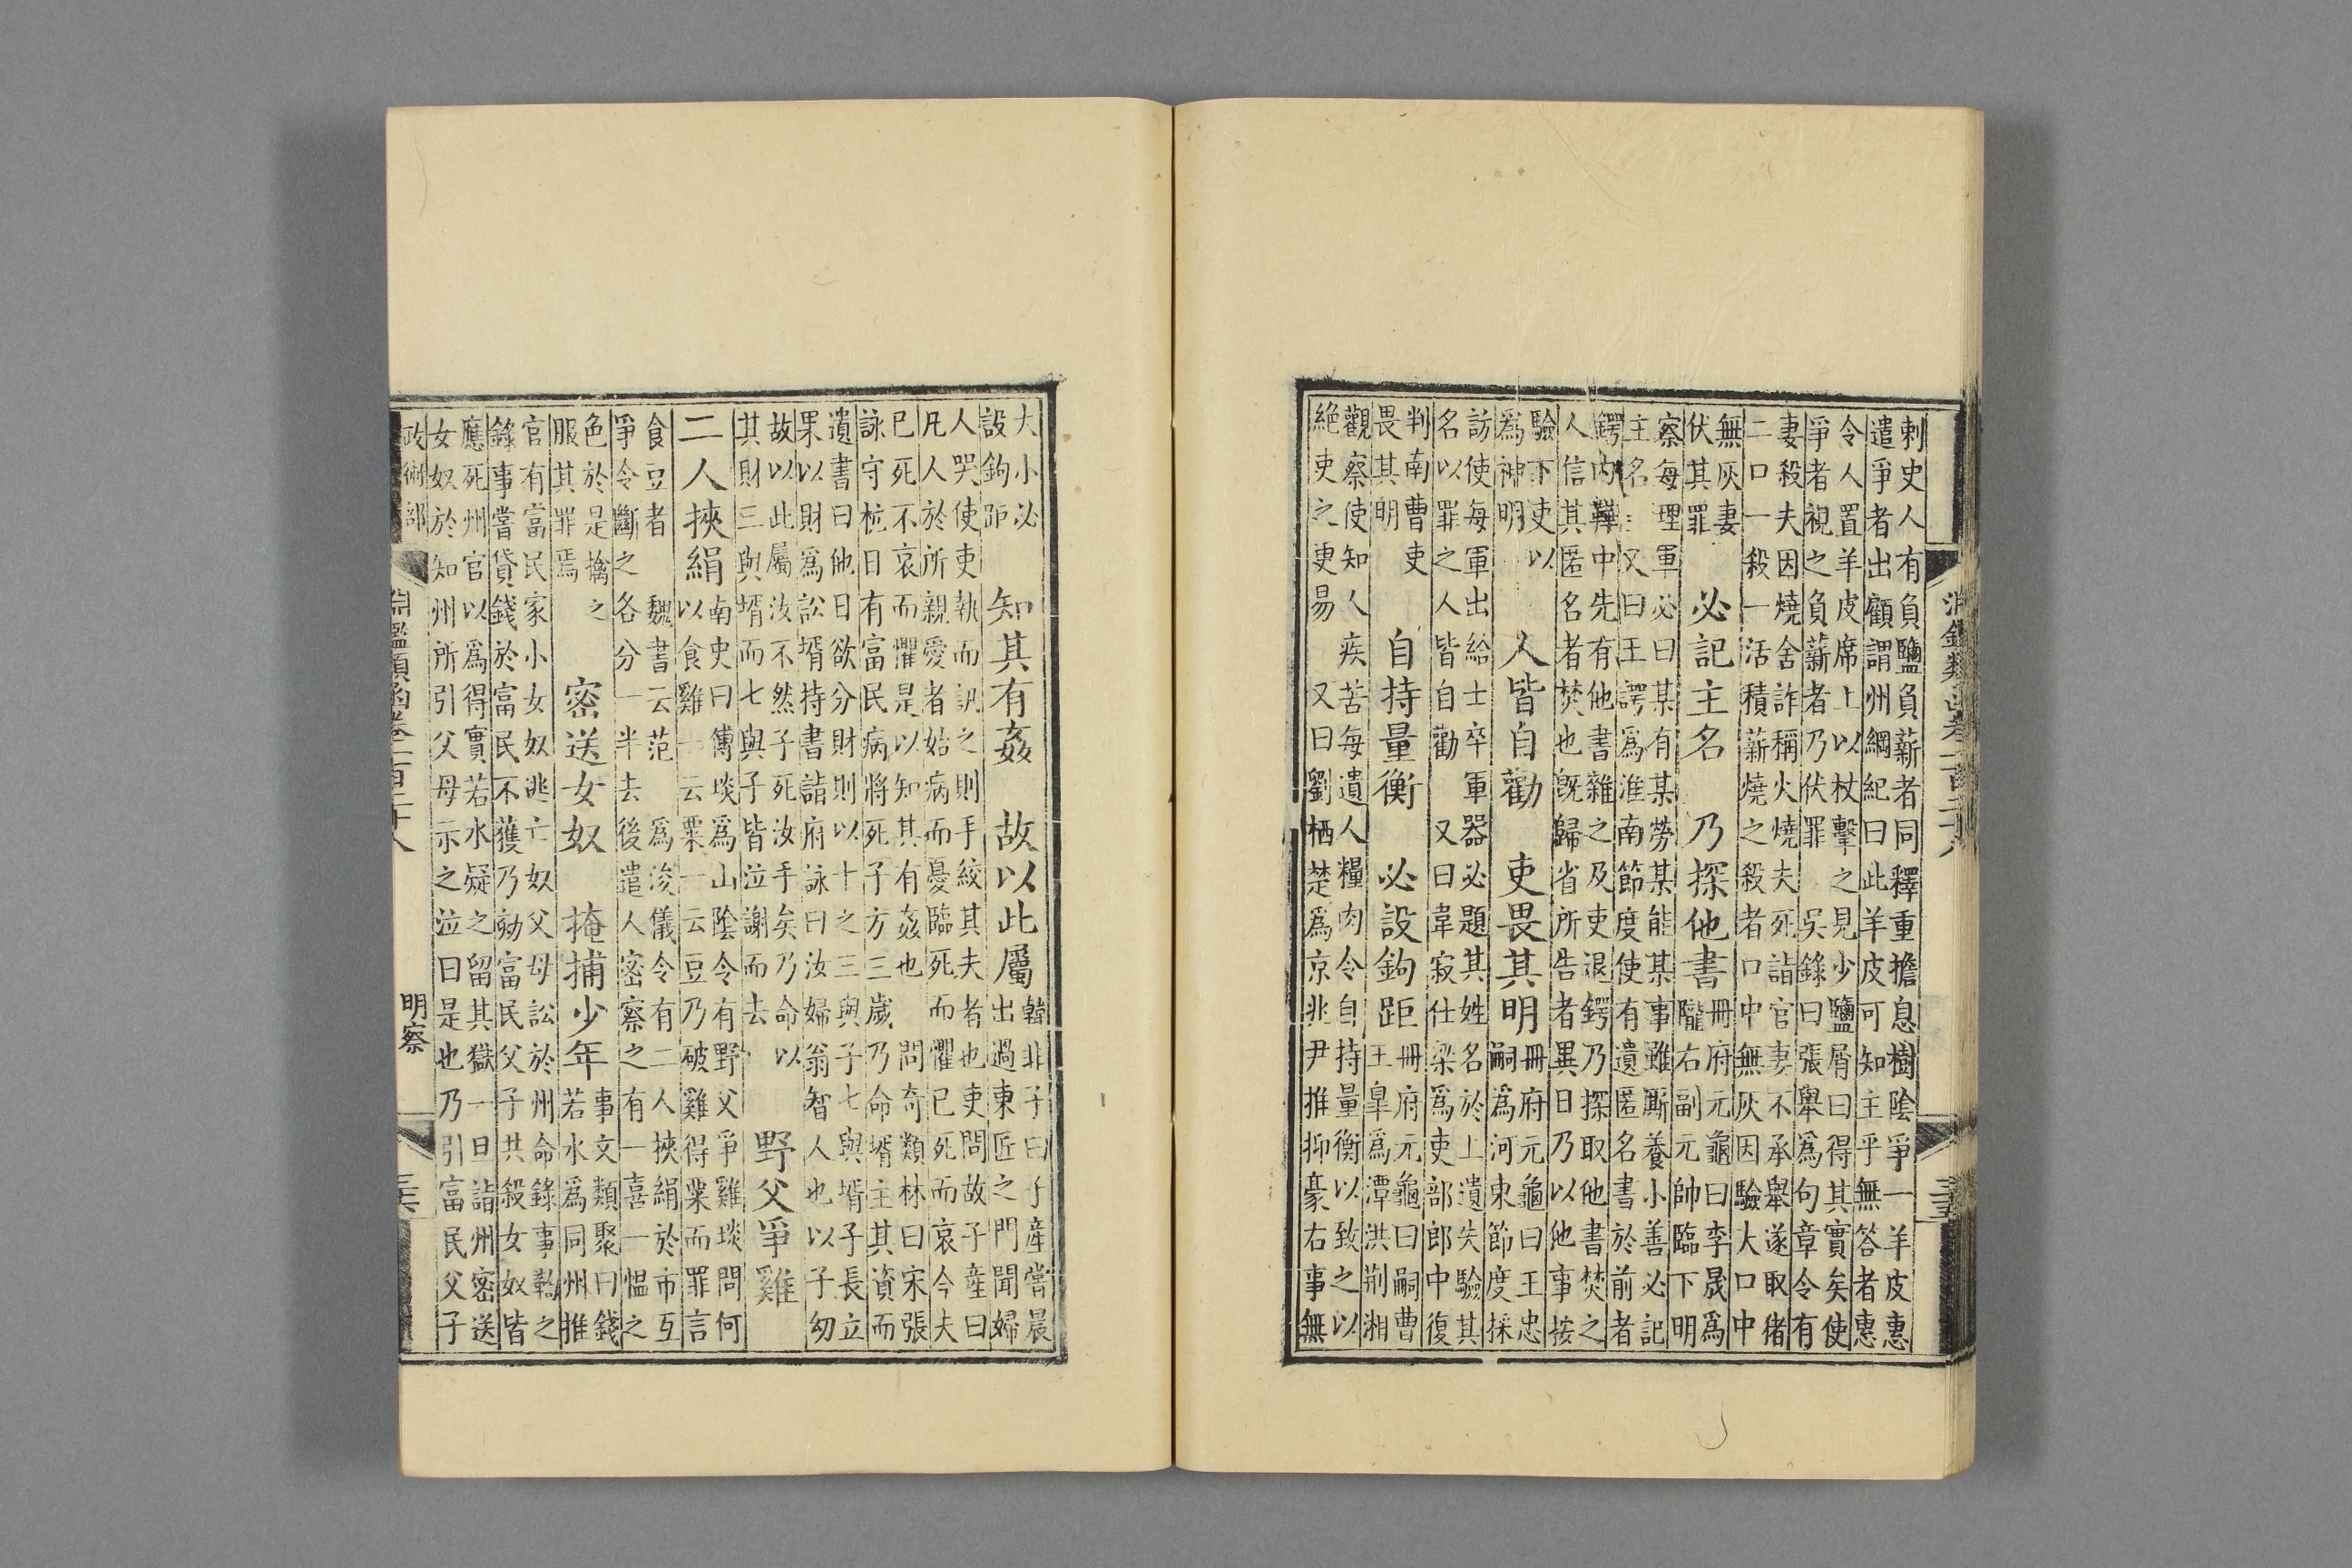 刺史人有負鹽負薪者同釋重擔息樹陰爭一羊皮惠
遣爭者出顧謂州綱紀曰此羊皮可知主乎無答者惠
令人置羊皮席上以杖擊之見少鹽屑曰得其實矣使
爭者視之負薪者乃伏罪 吳錄曰張舉爲句章令有
妻殺夫因燒舍詐稱火燒夫死詣官妻不承舉遂取豬
二口一殺一活積薪燒之殺者口中無灰因驗大口中
無灰妻
伏其罪
必記主名 乃探他書
冊府元龜曰李晟爲
隴右副元帥臨下明
察每理軍必曰某有某勞某能某事雖厮養小善必記
主名 又曰王諤爲淮南節度使有遺匿名書於前者
鍔內鞾中先有他書雜之及吏退鍔乃探取他書焚之
人信其匿名者焚也旣歸省所告者異日乃以他事按
驗下吏以
爲神明
人皆自勸 吏畏其明
冊府元龜曰王忠
嗣爲河東節度採
訪使每軍出給士卒軍器必題其姓名於上遺失驗其
名以罪之人皆自勸 又曰韋寂仕梁爲吏部郎中復
判南曹吏
畏其明
自持量衡 必設鉤距
冊府元龜曰嗣曹
王皐爲潭洪荆湘
觀察使知人疾苦每遺人糧肉令自持量衡以致之以
絕吏之更易 又曰劉栖楚爲京兆尹推抑豪右事無
三五
大小必
設鉤距
知其有姦 故以此屬
韓非子曰子產嘗晨
出過東匠之門聞婦
人哭使吏執而訊之則手絞其夫者也吏問故子產曰
凡人於所親愛者始病而憂臨死而懼已死而哀今夫
已死不哀而懼是以知其有姦也 問奇類林曰宋張
詠守杭日有富民病將死子方三歲乃命壻主其資而
遺書曰他日欲分財則以十之三與子七與壻子長立
果以財爲訟壻持書詣府詠曰汝婦翁智人也以子幼
故以此屬汝不然子死汝手矣乃命以
其財三與壻而七與子皆泣謝而去
野父爭雞
二人挾絹
南史曰傅琰爲山陰令有野父爭雞琰問何
以食雞一云粟一云豆乃破雞得粟而罪言
食豆者 魏書云范 爲浚儀令有二人挾絹於市互
爭令斷之各分一半去後遣人密察之有一喜一慍之
色於是擒之
服其罪焉
密送女奴 掩捕少年
事文類聚曰錢
若水爲同州推
官有富民家小女奴逃亡奴父母訟於州命錄事鞫之
錄事嘗貸錢於富民不獲乃劾富民父子共殺女奴皆
應死州官以爲得實若水疑之留其獄一旦詣州密送
女奴於知州所引父母示之泣曰是也乃引富民父子
政術部
淵鑑類函卷一百二十八
明察
三六